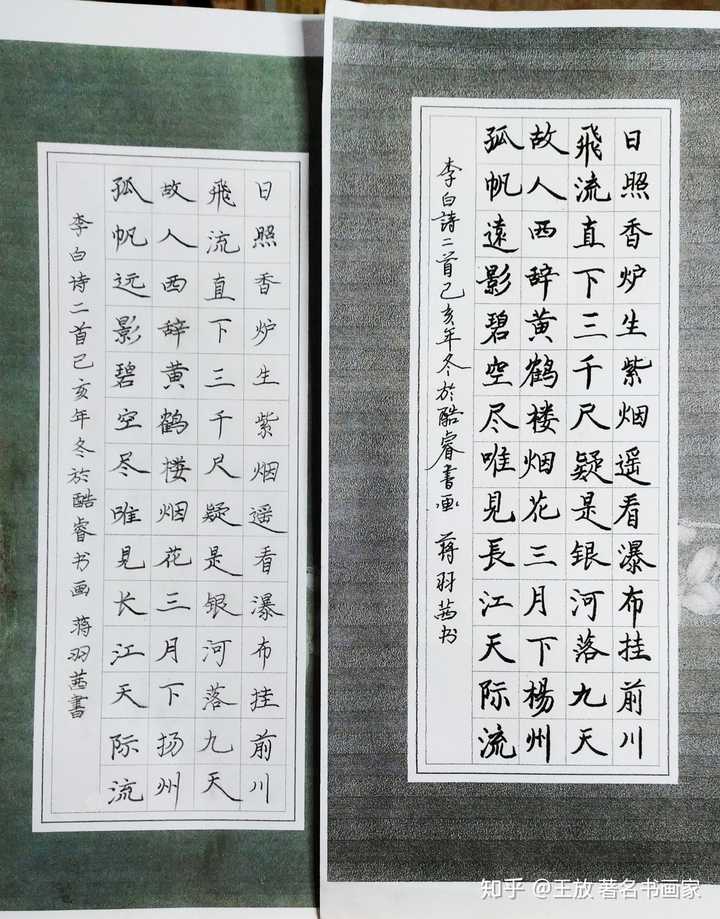 日照香炉生紫烟遥看瀑布挂前川
飛流直下三千尺疑是银河落九天
故人西辞黄鹤楼烟花三月下扬州
孤帆远影碧空尽唯見长江天际流
李白诗二首己亥年冬於酷睿书画 蒋羽茜書
日照香炉生紫烟遥看瀑布挂前川
飛流直下三千尺疑是银河落九天
故人西辞黄鹤楼烟花三月下楊州
孤帆遠影碧空尽唯見長江天际流
李白詩二首己亥年冬於酷睿書画 蒋羽茜书
知乎 @王放 著名书画家